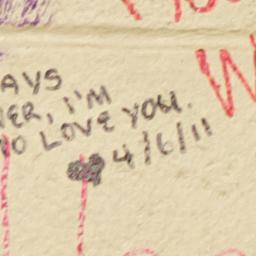 AYS
ER, I'M
O LOVE YOU.
4/6/11
W